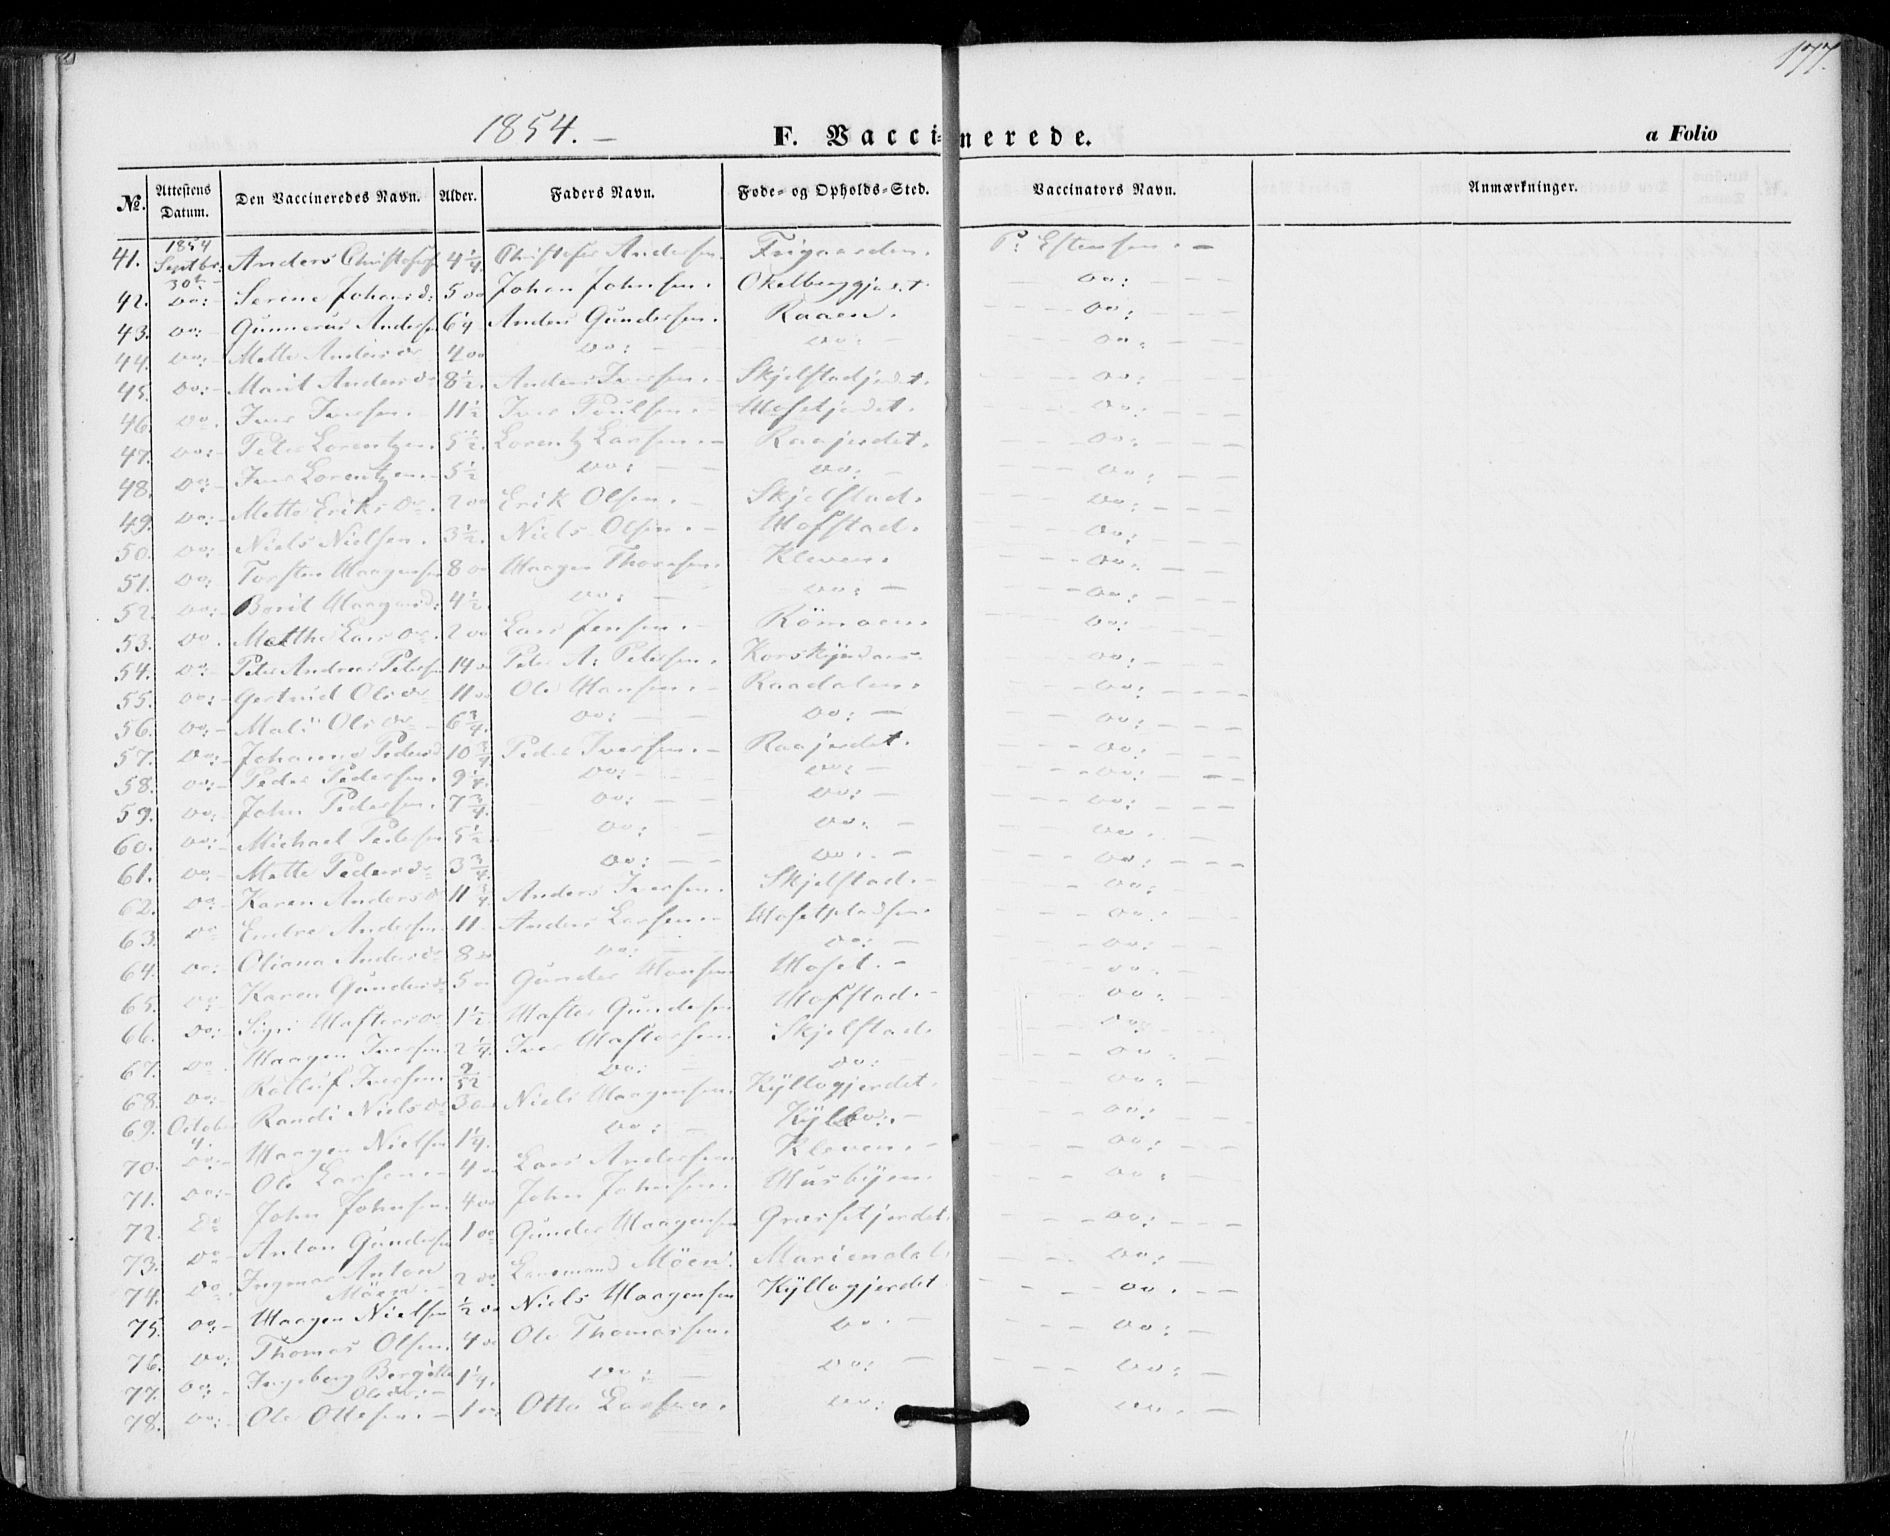 177.
1854. –
F. Vaccinerede.
a Folio
№. Attestens Datum. Den Vaccineredes Navn. Alder. Faders Navn. Føde- og Opholds-Sted. Vaccinators Navn. Anmærkninger.
41. 1854 Septbr. 30te Anders Christofers 4 1/4 Christofer Andersen. Trigaarden. P: Estensen. –
42. do: – Serine Johnsd: 5 do John Johnsen. do:
43. do: – Gunnerus Andersen 6 Anders Gundersen. Raaen. do:
44. do: – Mette Andersdr 4 do do: – – do: – do:
45. do: – Marit Andersdr 8 1/2. Anders Iversen. – Skjelstadjerdet. do:
46. do. Iver Iversen. – 11 1/2 Iver Poulsen. – Hofetjerdet. do:
47. do: – Peter Lorentzen. 5 1/2. Lorentz Larsen. – Raajerdet. do:
48. do: – Iver Lorentzen. – 5 1/2 do: – – do: – do:
49. do: – Mette Eriksdr. 2 do Erik Olsen. – Skjelstad. do:
50. do: Niels Nielsen. 3 1/2. Niels Olsen. – Hofstad. do:
51. do: Torsten Haagensen 8 do Haagen Thoresen. Kleven. do:
52. do: – Berit Haagensd: 4 1/2. do: – do: – do:
53. do. Metthe Larsdr. 2 do Lars Jensen. – Römoen. do:
54. do – Peter Andreas Petersen 14 do Peter A: Petersen. do:
55. do: – Gertrud Olsdr 11 do Ole Hansen. – Raadalen. do:
56. do: – Mali Olsdr – 6 3/4. do: – – do: – do:
57. do: – Johanna Pedersd 10 3/4 Peder Iversen. – Raajerdet. do:
58. do: – Peder Pedersen. 9 1/4. do: – do: – do:
59. do: – John Pedersen. 7 3/4. do: – – do: – do:
60. do: – Michael Pedersen 5 1/2 do: – do: – do:
61. do: – Mette Pedersdr 3 3/4. do: – – do: – do:
62. do – Karen Andersdr 11 3/4 Anders Iversen. Skjelstad. – do:
63. do Endre Andersen 11 Anders Larsen. – Hofetpladsen. do:
64. do: Oliana Andersdr 8 do do: – – do: – do:
65. do – Karen Gundersdr 5 do Gunder Hansen Hofet. – do:
66. do: Sigri Haftorsdr 1 1/2 Haftor Gundersen Hofstad. – do:
67. do. Haagen Iversen 2 1/4. Iver Haftorsen. Skjelstad do:
68. do: Rolluf Iversen 9/52 do: – do: – do:
69. October 4. Randi Nielsdr 3 do Niels Haagensen. Kÿllogjerdet. do:
70. do: – Haagen Nielsen 1 1/4. do: – Kÿllo. – do:
71. do: – Ole Larsen. – 4 do Lars Andersen Kleven. – do:
72. do John Johnsen. 4 do John Johnsen. Husbÿen. do:
73. do – Anton Gundersen 1 do Gunder Haagensen Græsetjerdet. do:
74. do. Ingmar Anton Möen. – 2 do Möen. Mariendal. do:
75. do: – Haagen Nielsen 1/2 do Niels Haagensen Kÿllogjerdet do. –
76. do: Thomas Olsen. 4 do Ole Thomassen. do. – do: –
77. do: – Ingeborg Bergitte Olsdr. – 1 1/4. do: – do: – do: –
78. do: – Ole Ottesen. – 1 do Otto Larsen. do: do. –